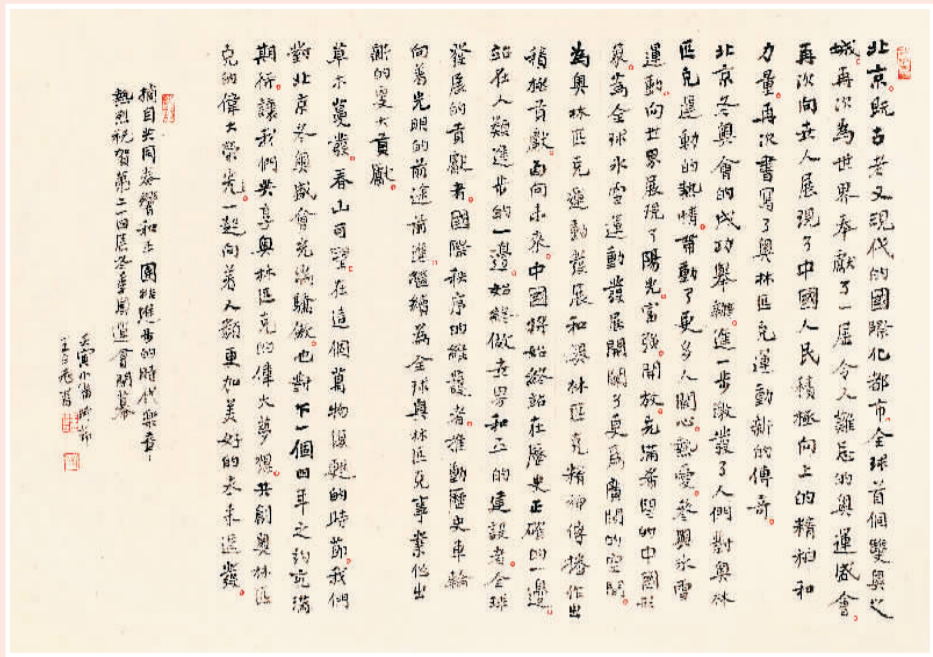 北京。既古老又現代的國際化都市。全球首個雙奧之
城。再次為世界奉獻了一屆令人難忘的奧運盛會。
再次向世人展現了中國人民積極向上的精神和
力量。再次書寫了奧林匹克運動新的傳奇。
北京冬奧會的成功舉辦。進一步激發了人們對奧林
匹克運動的熱情。帶動了更多人關心。熱愛。參與冰雪
運動。向世界展現了陽光。富強。開放。充滿希望的中國形
象。為全球冰雪運動發展開闢了更為廣闊的空間。
為奧林匹克運動發展和奧林匹克精神傳播作出
積極貢獻。面向未來。中國將始終站在歷史正確的一邊。
站在人類進步的一邊。始終做世界和平的建設者。全球
發展的貢獻者。國際秩序的維護者。推動歷史車輪
向着光明的前途前進。繼續為全球奧林匹克事業作出
新的更大貢獻。
草木蔓發。春山可望。在這個萬物復甦的時節。我們
對北京冬奧盛會充滿驕傲。也對下一個四年之約充滿
期待。讓我們共享奧林匹克的偉大夢想。共創奧林匹
克的偉大榮光。一起向着人類更加美好的未來進發。
摘自共同奏響和平團結進步的時代樂章
熱烈祝賀第二十四屆冬季奧運會閉幕
壬寅小雷時節